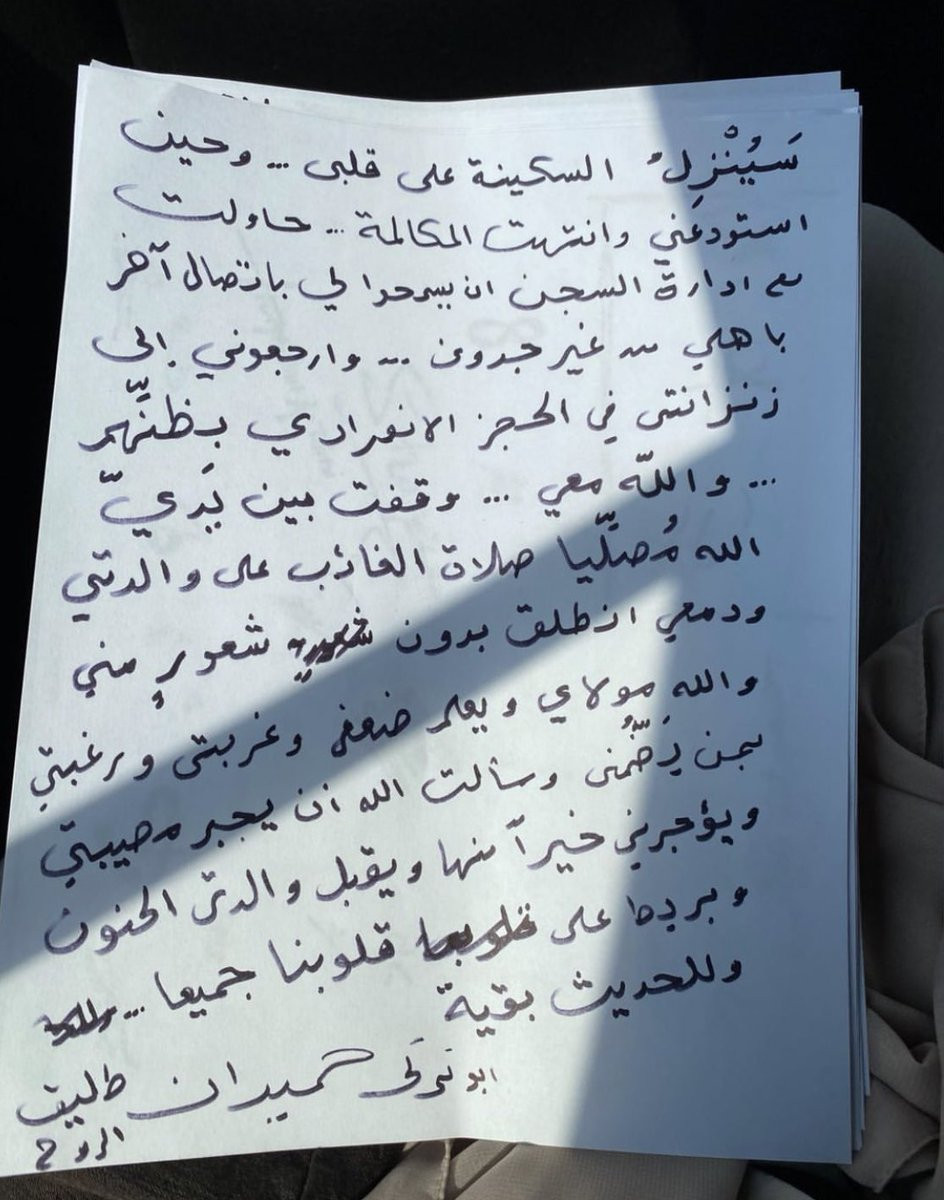 سَيُنْزِلُ السكينة على قلبي ... وحين
استودعني وانتهت المكالمة ... حاولت
مع ادارة السجن ان يسمحوا لي باتصال آخر
باهلي من غير جدوى ... وارجعوني إلى
زنزانتي في الحجز الانفرادي بِظنِّهم
... واللّه معي ... وقفت بين يَديّ
الله مُصلّيا صلاة الغائب على والدتي
ودمعي انطلق بدون شعورٍ مني
والله مولاي ويعلم ضعفي وغربتي ورغبتي
بمن يَضّمُني وسألت الله أن يجبر مصيبتي
ويؤجرني خيراً منها ويقبل والدتي الحنون
ويربط على قلوبنا جميعا ...
وللحديث بقية
ابو تركي حميدان طليق
الروح